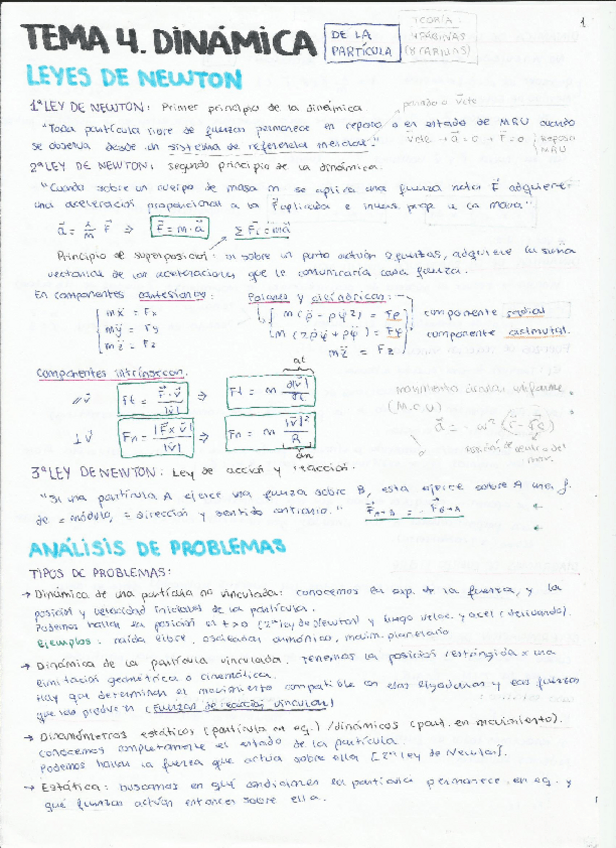 1
TEMA 4. DINÁMICA DE LA PARTÍCULA
TEORÍA:
LEYES DE NEWTON
1ª LEY DE NEWTON: Primer principio de la dinámica
"Toda partícula libre de fuerzas permanece en reposo o en estado de MRU cuando
se observa desde un sistema de referencia inercial."
Reposo
MRU
2ª LEY DE NEWTON: segundo principio de la dinámica.
"Cuando sobre un cuerpo de masa m se aplica una fuerza neta F⃗ adquiere
una aceleración proporcional a la F⃗ aplicada e invers. prop. a la masa"
a⃗ = 1/m F⃗ ⇒ F⃗ = m·a⃗ Σ F⃗i = ma⃗
Principio de superposición: si sobre un punto actúan fuerzas, adquiere la suma
vectorial de las aceleraciones que le comunicaría cada fuerza.
En componentes cartesianas: Polares y cilíndricas:
mẍ = Fx m(ρ̈ - ρφ̇²) = Fρ componente radial
mÿ = Fy m(2ρ̇φ̇ + ρφ̈) = Fφ componente acimutal.
mz̈ = Fz mz̈ = Fz
Componentes intrínsecas:
at
// v⃗ Ft = F⃗·v⃗/|v⃗| ⇒ Ft = m d|v⃗|/dt
⊥ v⃗ Fn = |F⃗×v⃗|/|v⃗| ⇒ Fn = m |v⃗|²/R
an
movimiento circular uniforme
(M.C.U)
3ª LEY DE NEWTON: Ley de acción y reacción.
"Si una partícula A ejerce una fuerza sobre B, esta ejerce sobre A una f.
de = módulo, = dirección y sentido contrario." F⃗A→B = - F⃗B→A
ANÁLISIS DE PROBLEMAS
TIPOS DE PROBLEMAS:
→ Dinámica de una partícula no vinculada: conocemos la fuerza, y la
posición y velocidad iniciales de la partícula.
Podemos hallar la posición si t>0 (2ª ley de Newton) y luego veloc. y acel (derivando).
Ejemplos: caída libre, oscilador armónico, movim. planetario
→ Dinámica de la partícula vinculada. Tenemos la posición restringida x una
limitación geométrica o cinemática.
Hay que determinar el movimiento compatible con esas ligaduras y las fuerzas
que las producen (Fuerzas de reacción vincular)
→ Dinamómetros estáticos (partícula en eq.) / dinámicos (part. en movimiento).
Conocemos completamente el estado de la partícula.
Podemos hallar la fuerza que actúa sobre ella [2ª ley de Newton].
→ Estática: buscamos en qué condiciones la partícula permanece en eq. y
qué fuerzas actúan entonces sobre ella.